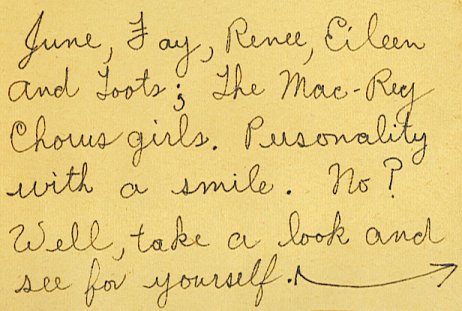 June, Fay, Renee, Eileen
and Toots; The Mac-Rey
Chorus girls. Personality
with a smile. No?
Well, take a look and
see for yourself.